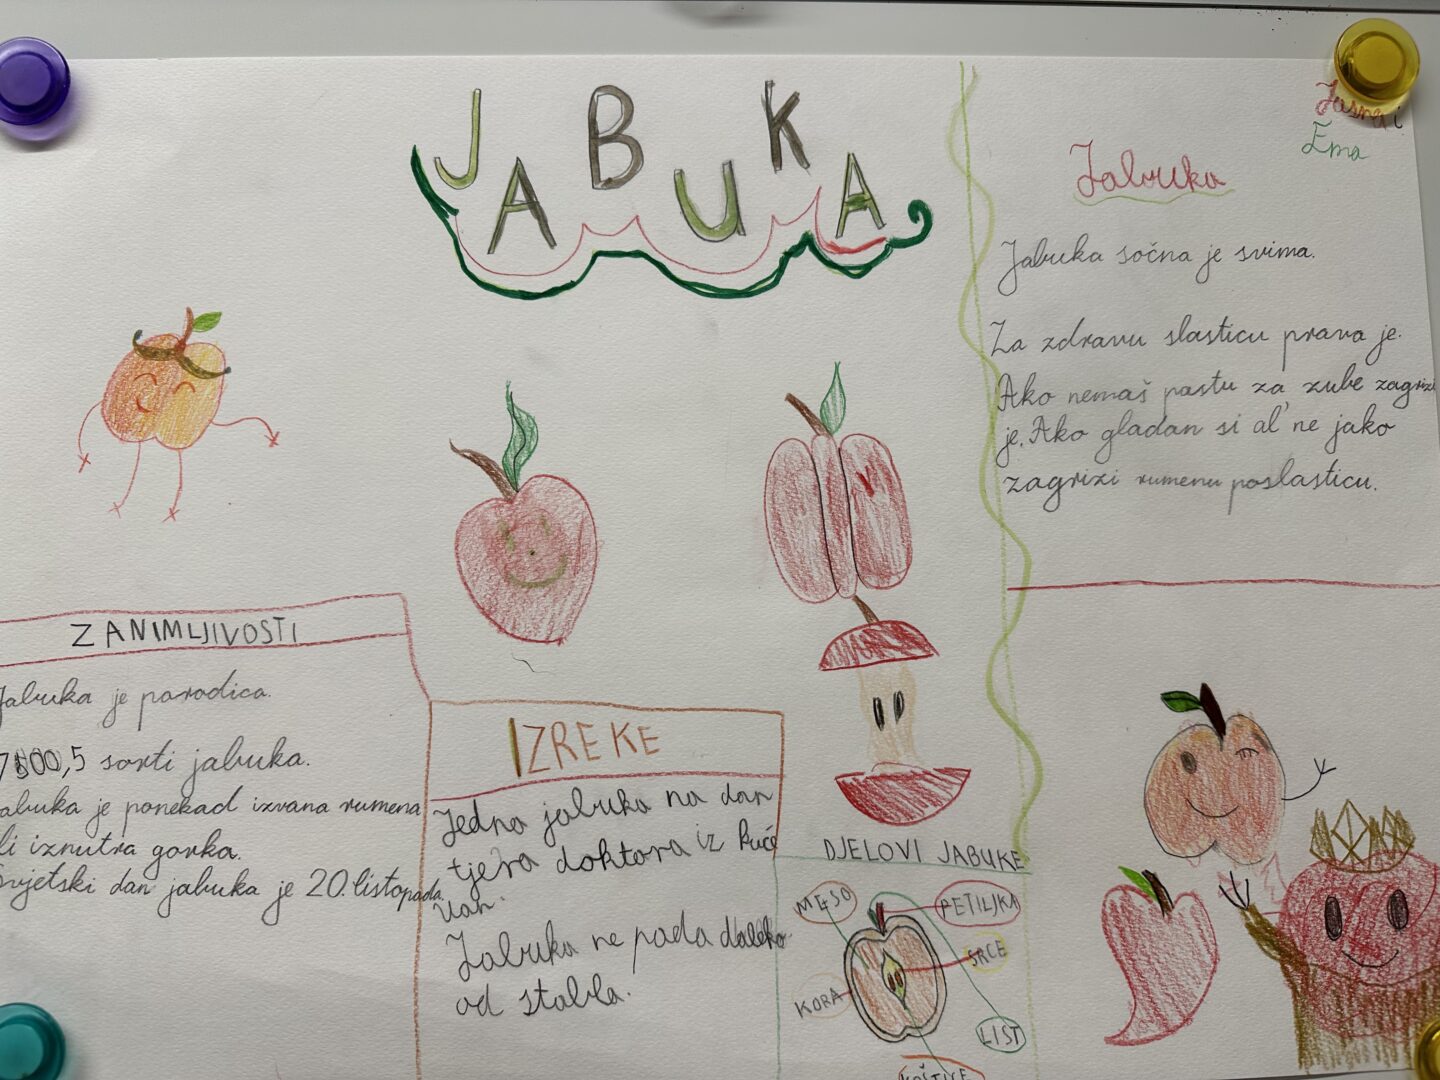 JABUKA
i
Ema
Jabuka
Jabuka sočna je svima.
Za zdravu slasticu prava je.
Ako nemaš pastu za zube zagrizi
je. Ako gladan si al' ne jako
zagrizi rumenu poslasticu.
ZANIMLJIVOSTI
Jabuka je porodica.
7500,5 sorti jabuka.
Jabuka je ponekad izvana rumena
ili iznutra gorka.
Svjetski dan jabuka je 20. listopada.
IZREKE
Jedna jabuka na dan
tjera doktora iz kuće
van.
Jabuka ne pada daleko
od stabla.
DJELOVI JABUKE
MESO
PETILJKA
SRCE
KORA
LIST
KOŠTICE